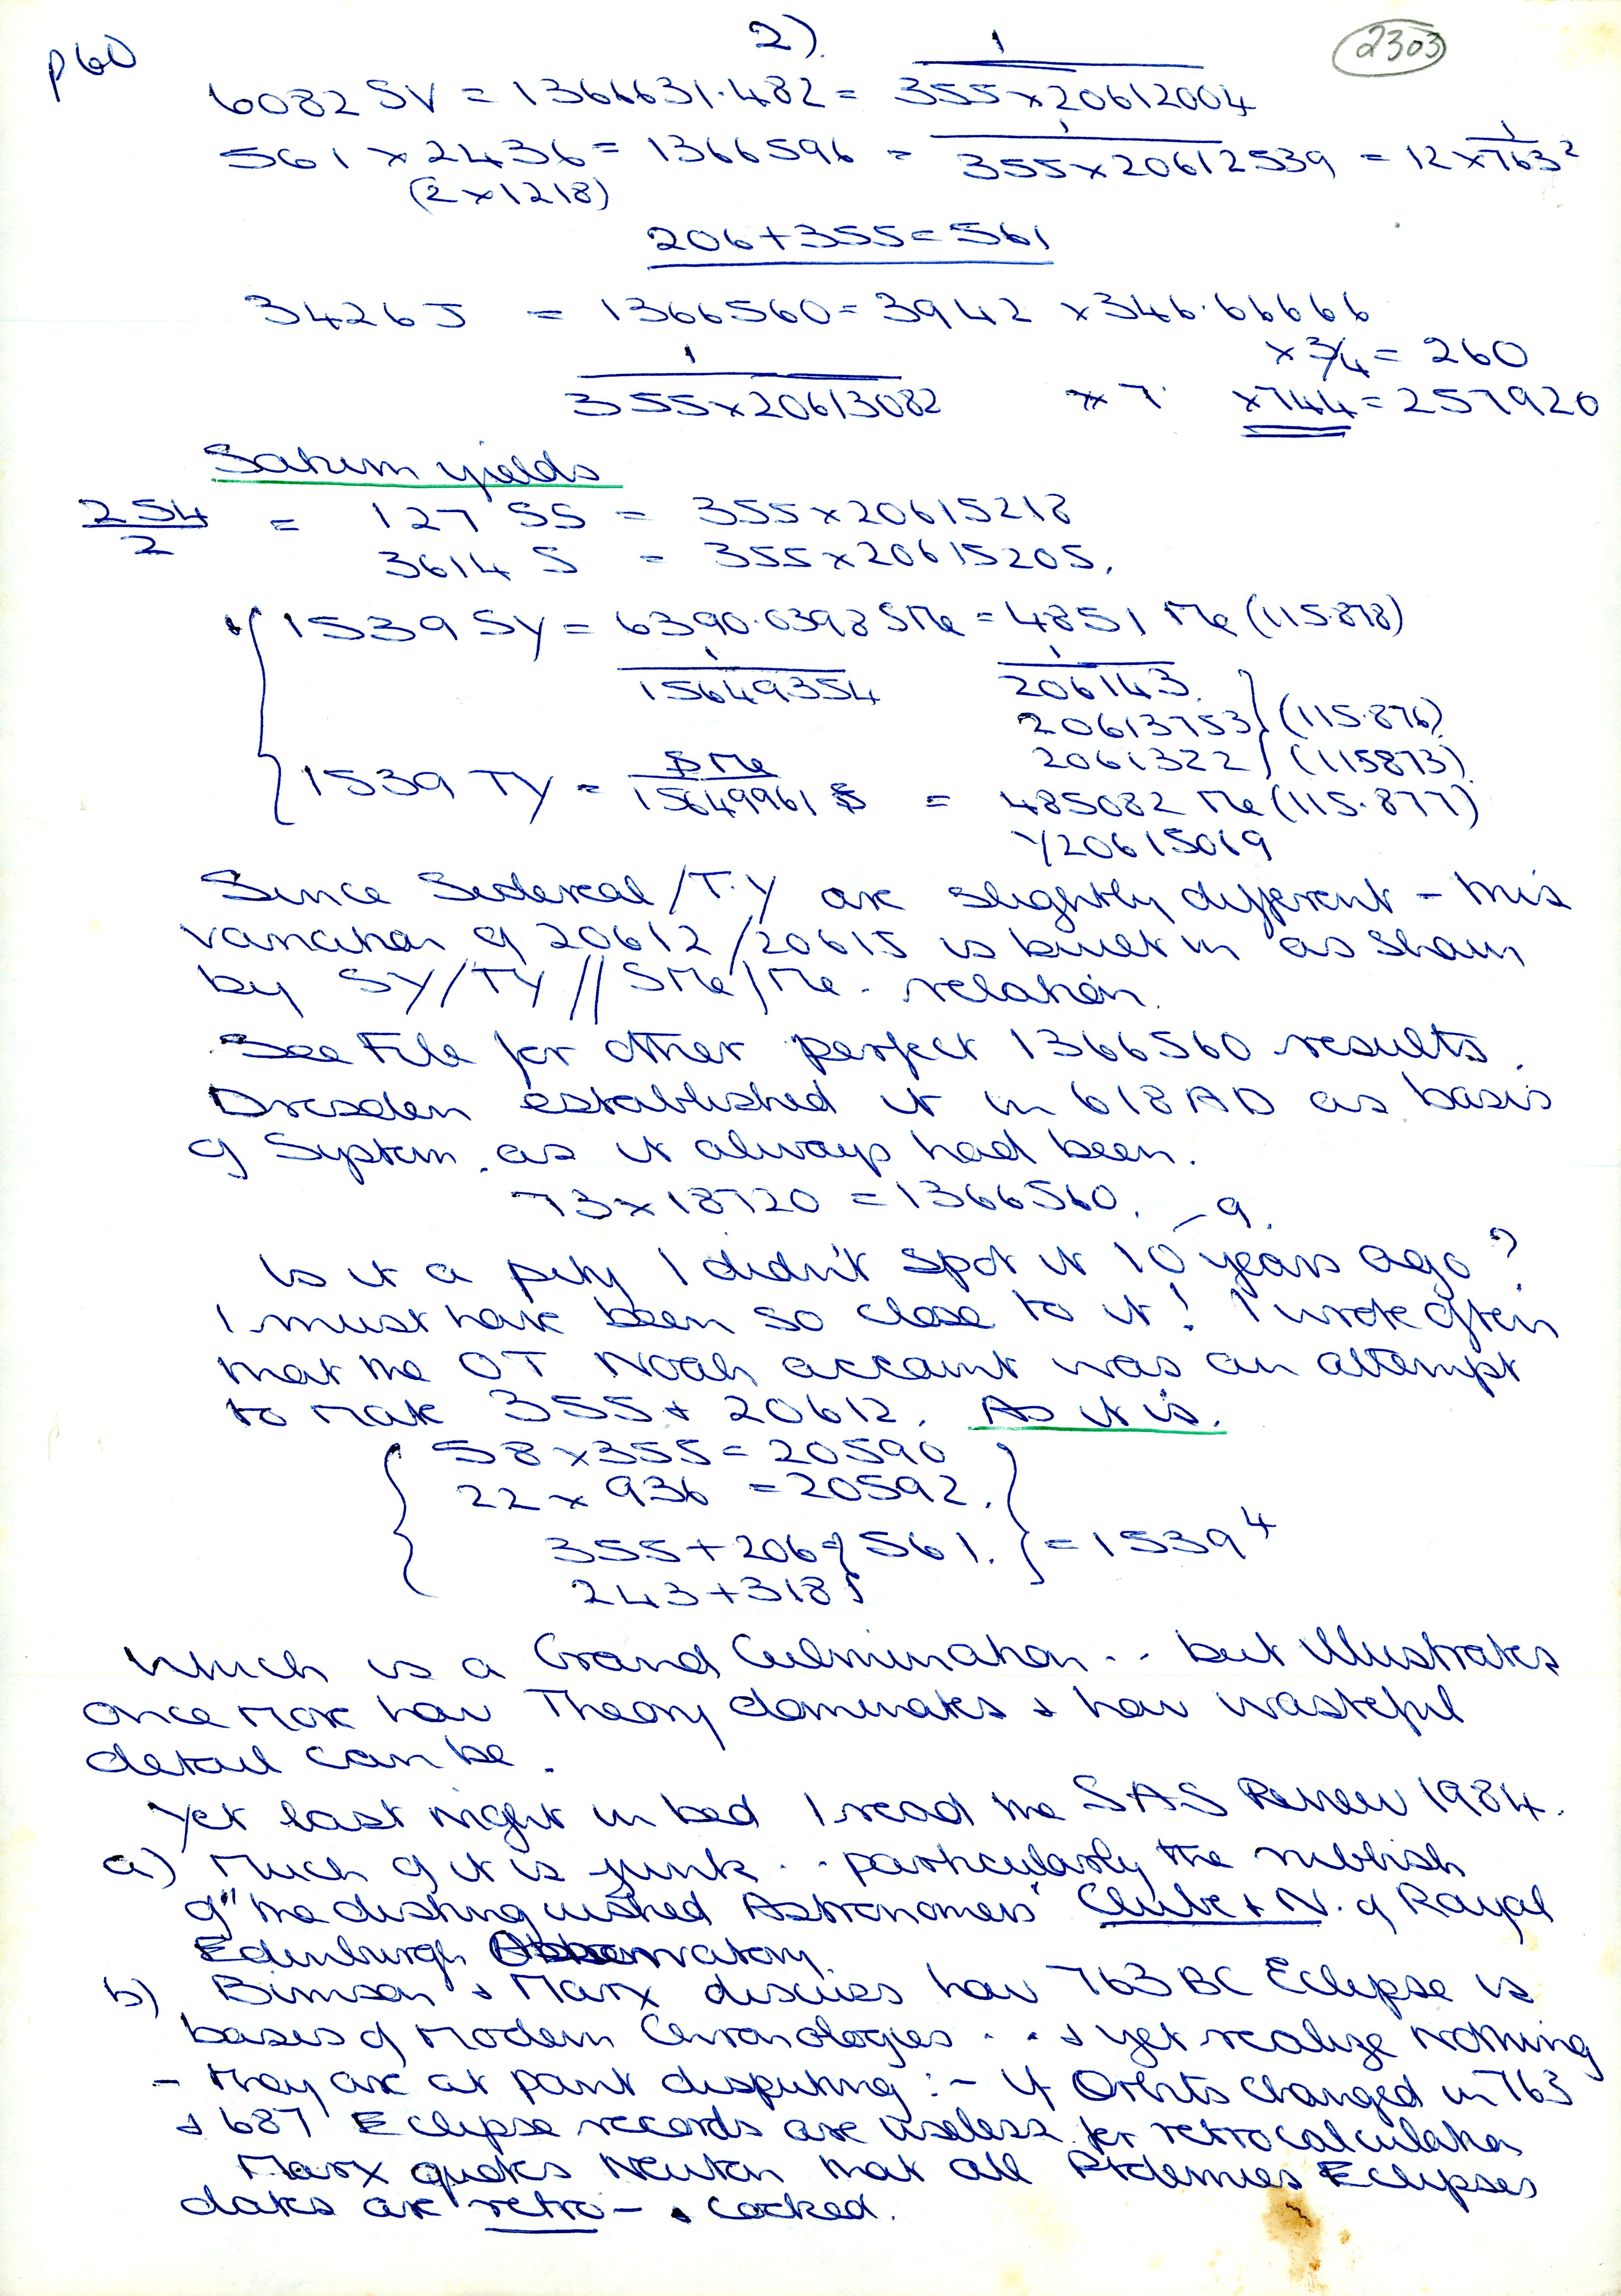 p60
2).
2303
6082 SV = 1366631.482 = 1/355×20612004
561 × 2436 = 1366596 = 1/355×20612539 = 1/12×763²
(2×1218)
206+355=561
3426 J = 1366560 = 3942 × 346.66666
×3/4 = 260
1/355×20613082 ×7 ×744 = 257920
Saturn yields
254/2 = 127 SS = 355×20615218
3614 S = 355×20615205.
1539 SY = 6390.0398 SMe = 4851 Me (115.878)
1/15649354 1/206143
20613753 (115.876)
2061322 (115873)
1539 TY = SMe/15649961 = 485082 Me (115.877)
Y20615019
Since Sidereal/T.Y are slightly different - this
variation of 20612/20615 is built in as shown
by SY/TY // SMe/Me. relation.
See File for other perfect 1366560 results.
Dresden established it in 618 AD as basis
of System. as it always had been.
73×18720 = 1366560. -9.
Is it a pity I didn't spot it 10 years ago?
I must have been so close to it! I wrote often
that the OT Noah account was an attempt
to mate 355 + 20612. As it is.
58×355 = 20590
22×936 = 20592.
355+206 = 561. = 1539⁴
243+318
Which is a Grand Culmination.. but illustrates
once more how Theory dominates + how wasteful
detail can be.
Yet last night in bed I read the SAS Review 1984.
a) Much of it is junk.. particularly the rubbish
of "the distinguished Astronomers" Clube + N. of Royal
Edinburgh Observatory.
b) Bimson + Marx discuss how 763 BC Eclipse is
basis of modern Chronologies... + yet realize nothing
- they are at pant disputing :- If Orbits changed in 763
+ 687 Eclipse records are useless for retrocalculation
Marx quotes Newton that all Ptolemies Eclipses
dates are retro- cocked.